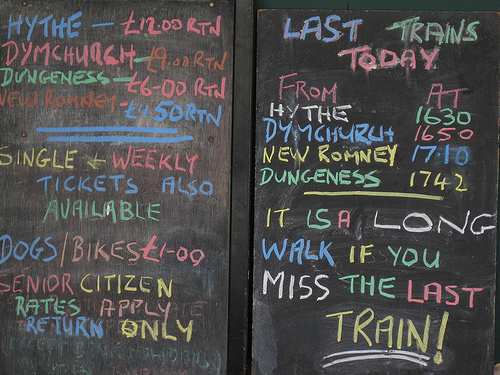 HYTHE — £12.00 RTN
DYMCHURCH — £9.00 RTN
DUNGENESS — £6-00 RTN
NEW ROMNEY - £4.50 RTN
SINGLE & WEEKLY
TICKETS ALSO
AVAILABLE
DOGS/BIKES £1-00
SENIOR CITIZEN
RATES APPLY
RETURN ONLY
LAST TRAINS
TODAY
FROM AT
HYTHE 1630
DYMCHURCH 1650
NEW ROMNEY 17:10
DUNGENESS 1742
IT IS A LONG
WALK IF YOU
MISS THE LAST
TRAIN!